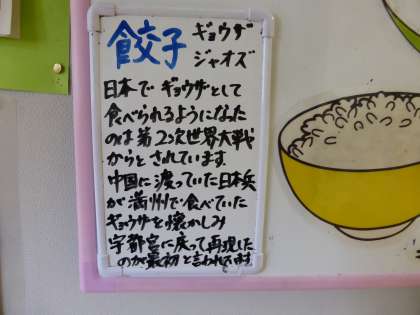 餃子 ギョウザ
ジャオズ
日本でギョウザとして
食べられるようになった
のは第2次世界大戦
からとされています。
中国に渡っていた日本兵
が満州で食べていた
ギョウザを懐かしみ
宇都宮に戻って再現した
のが最初と言われています。